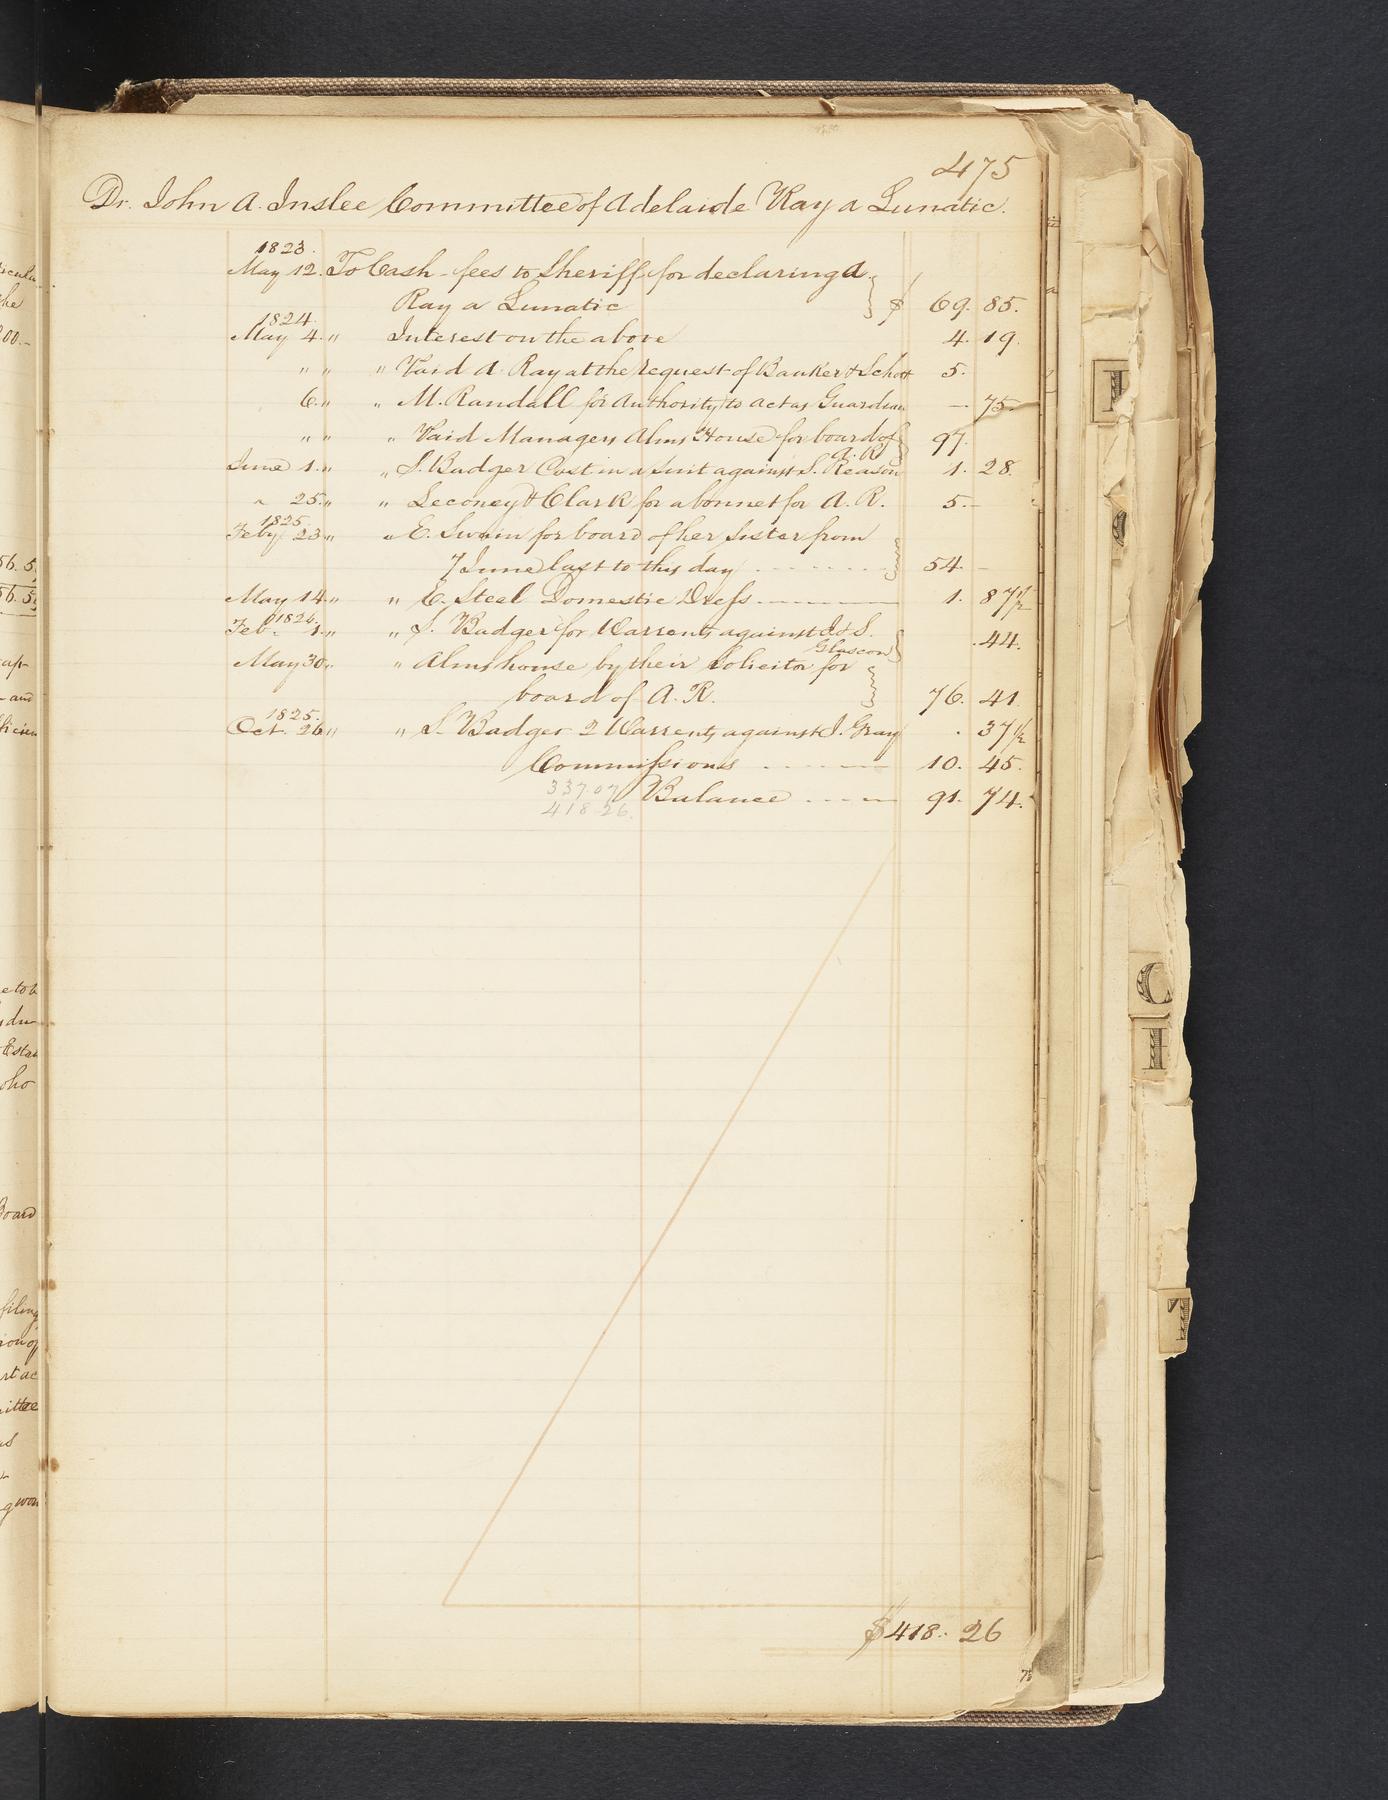 475
Dr. John A. Inslee Committee of Adelaide Ray a Lunatic.
1823.
May 12. To Cash - fees to Sheriff for declaring A.
Ray a Lunatic } $ 69. 85.
1824.
May 4. " Interest on the above 4. 19.
" " " Paid A. Ray at the request of Banker & Schott 5.
6. " " M. Randall for Authority to act as Guardian —. 75.
" " " Paid Managers Alms House for board of A. R. } 97.
June 1. " " S. Badger Cost in a Suit against S. Reason 1. 28.
" 25. " " Leconey & Clark for a bonnet for A. R. 5. -
1825.
Feby 23 " " E. Swain for board of her Sister from
7 June last to this day } 54. -
May 14. " " C. Steel Domestic Dress 1. 87 1/2
1824.
Feb. 1. " " S. Badger for Warrents against J & S. Glascon } . 44.
May 30. " " Almshouse by their Solicitor for
board of A. R. } 76. 41.
1825.
Oct. 26 " " S. Badger 2 Warrents against J. Gray . 37 1/2
Commissions 10. 45.
337.07 Balance 91. 74.
418.26.
$418. 26
I
O
C
I
T